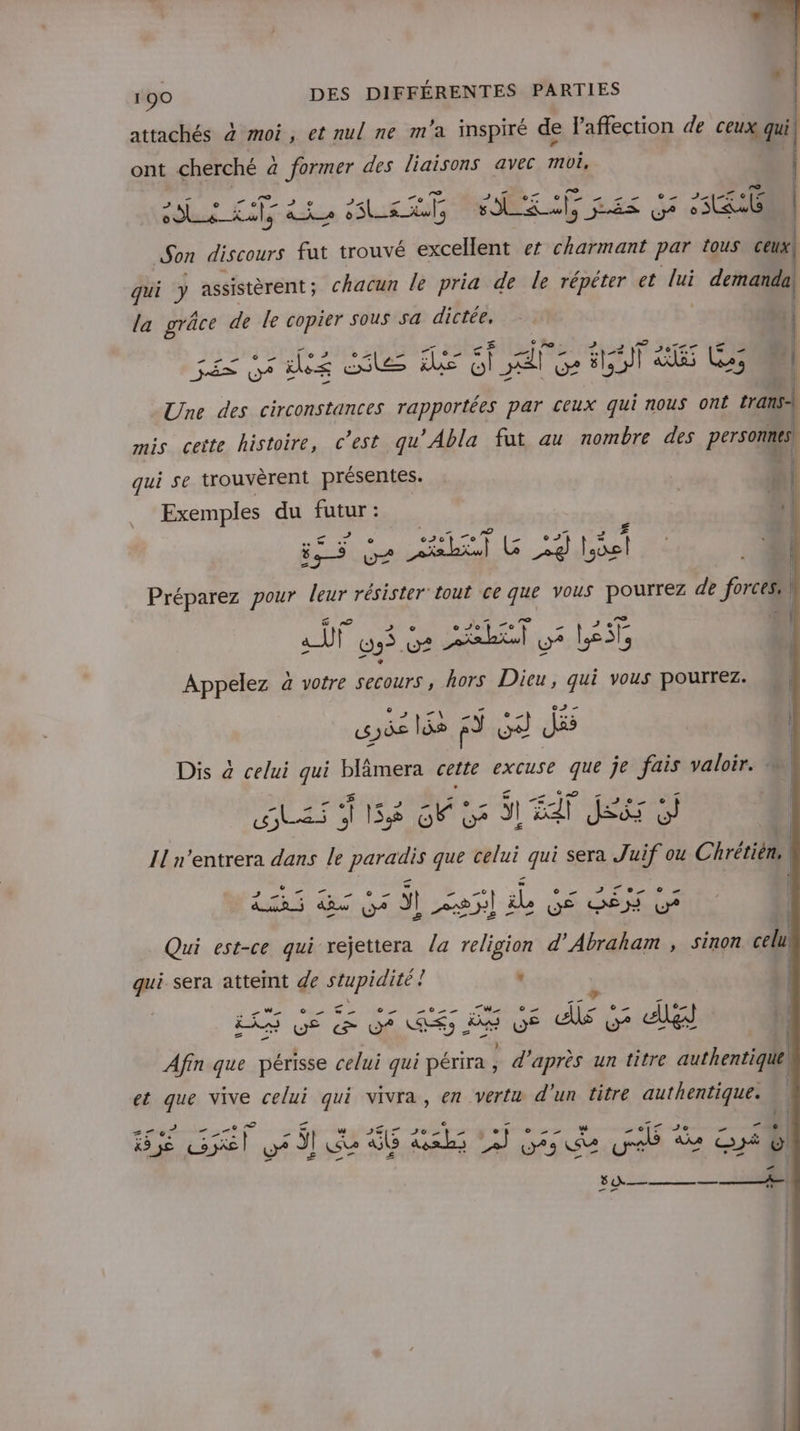 190 DES DIFFÉRENTES PARTIES
attachés à moi, et nul ne m'a inspiré de l'affection de ceux qui
ont cherché à former des liaisons avec moi.
فَٱسْتَجَادَهُ مَنْ حَضَرَ وَٱسْتَحْلَاهُ وَٱسْتَعَادَهُ مِنْهُ وَٱسْتَمْلَاهُ
Son discours fut trouvé excellent et charmant par tous ceux
qui y assistèrent; chacun le pria de le répéter et lui demanda
la grâce de le copier sous sa dictée.
وَمِمَّا نَقَلَتْهُ ٱلرُّوَاةُ مِنَ ٱلْخَبَرِ أَنَّ عَبْلَةَ كَانَتْ جُمْلَةَ مَنْ حَضَرَ
Une des circonstances rapportées par ceux qui nous ont trans-
mis cette histoire, c'est qu'Abla fut au nombre des personnes
qui se trouvèrent présentes.
Exemples du futur:
أَعِدُّوا لَهُمْ مَا ٱسْتَطَعْتُمْ مِنْ قُوَّةٍ
Préparez pour leur résister tout ce que vous pourrez de forces.
وَٱدْعُوا مَنِ ٱسْتَطَعْتُمْ مِنْ دُونِ ٱللَّهِ
Appelez à votre secours, hors Dieu, qui vous pourrez.
فَقُلْ لِمَنْ لَامَ هٰذَا عُذْرِى
Dis à celui qui blâmera cette excuse que je fais valoir.
لَنْ يَدْخُلَ ٱلْجَنَّةَ إِلَّا مَنْ كَانَ هُودًا أَوْ نَصَارَى
Il n'entrera dans le paradis que celui qui sera Juif ou Chrétien.
مَنْ يَرْغَبُ عَنْ مِلَّةِ إِبْرٰهِيمَ إِلَّا مَنْ سَفِهَ نَفْسَهُ
Qui est-ce qui rejettera la religion d'Abraham, sinon celui
qui sera atteint de stupidité!
لِيَهْلِكَ مَنْ هَلَكَ عَنْ بَيِّنَةٍ وَيَحْيَى مَنْ حَىَّ عَنْ بَيِّنَةٍ
Afin que périsse celui qui périra, d'après un titre authentique
et que vive celui qui vivra, en vertu d'un titre authentique.
مَنْ شَرِبَ مِنْهُ فَلَيْسَ مِنِّى وَمَنْ لَمْ يَطْعَمْهُ فَإِنَّهُ مِنِّى إِلَّا مَنِ ٱغْتَرَفَ غُرْفَةً